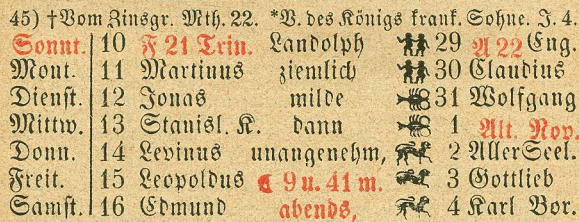 45) †Vom Zinsgr. Mth. 22. *V. des Königs krank. Sohne. J. 4.
Sonnt. 10 F 21 Trin. Landolph 29 A 22 Eng.
Mont. 11 Martinus ziemlich 30 Claudius
Dienst. 12 Jonas milde 31 Wolfgang
Mittw. 13 Stanisl. K. dann 1 Alt. Nov.
Donn. 14 Levinus unangenehm, 2 Aller Seel.
Freit. 15 Leopoldus ☾ 9 u. 41 m. 3 Gottlieb
Samst. 16 Edmund abends, 4 Karl Bor.